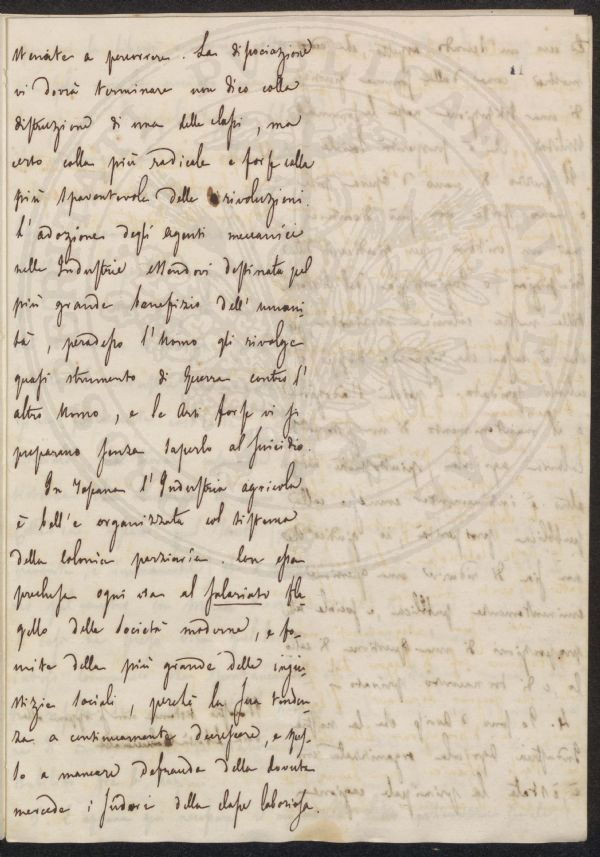 11
tenute a percorrere. La dissociazione
vi dovrà terminare non dico colla
distruzione di una delle classi, ma
certo colla più radicale e forse colla
più spaventevole delle rivoluzioni.
L'adozione degli agenti meccanici
nelle Industrie essendovi destinata pel
più grande benefizio dell'umani-
tà, per adesso l'Uomo gli rivolge
quasi strumento di Guerra contro l'
altro Uomo, e le Arti forse vi si
preparano senza saperlo al suicidio.
In Toscana l'Industria agricola
è bell'e organizzata col sistema
della colonia parziaria. Con essa
preclusa ogni via al salariato fla-
gello delle Società moderne, e fo-
mite della più grande delle ingiu-
stizie sociali, perchè la sua tenden-
za a continuamente decrescere, e spes-
so a mancare defrauda della dovuta
mercede i sudori della classe laboriosa.